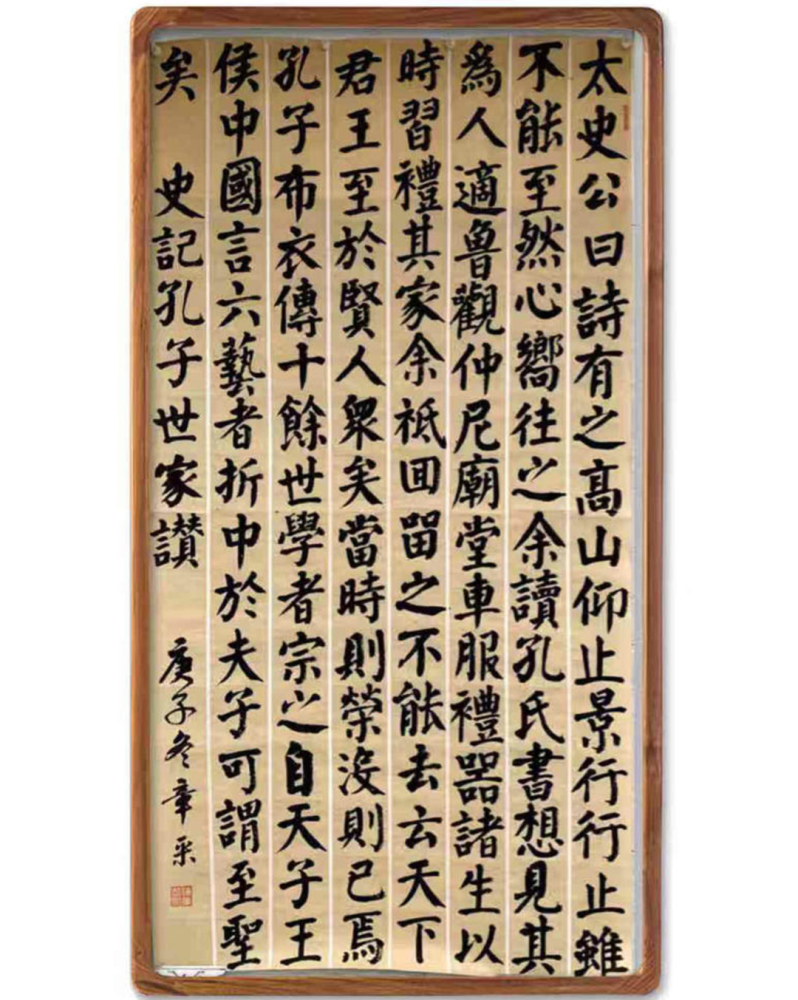 太史公曰詩有之高山仰止景行行止雖
不能至然心嚮往之余讀孔氏書想見其
為人適魯觀仲尼廟堂車服禮器諸生以
時習禮其家余祗回留之不能去云天下
君王至於賢人眾矣當時則榮沒則已焉
孔子布衣傳十餘世學者宗之自天子王
侯中國言六藝者折中於夫子可謂至聖
矣 史記孔子世家讃 庚子冬章采